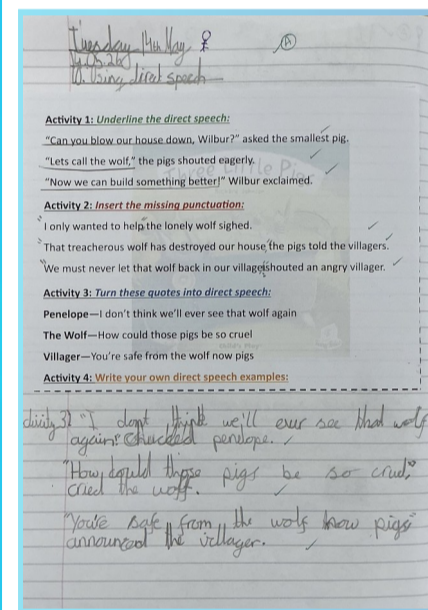 Tuesday 14th May
LO. Using direct speech
Activity 1: Underline the direct speech:
"Can you blow our house down, Wilbur?" asked the smallest pig.
"Lets call the wolf," the pigs shouted eagerly.
"Now we can build something better!" Wilbur exclaimed.
Activity 2: Insert the missing punctuation:
"I only wanted to help" the lonely wolf sighed.
"That treacherous wolf has destroyed our house" the pigs told the villagers.
"We must never let that wolf back in our village" shouted an angry villager.
Activity 3: Turn these quotes into direct speech:
Penelope—I don't think we'll ever see that wolf again
The Wolf—How could those pigs be so cruel
Villager—You're safe from the wolf now pigs
Activity 4: Write your own direct speech examples:
"I dont think we'll ever see that wolf
again" penelope.
"How could those pigs be so cruel"
cried the wolf.
"You're safe from the wolf now pigs"
announced the villager.